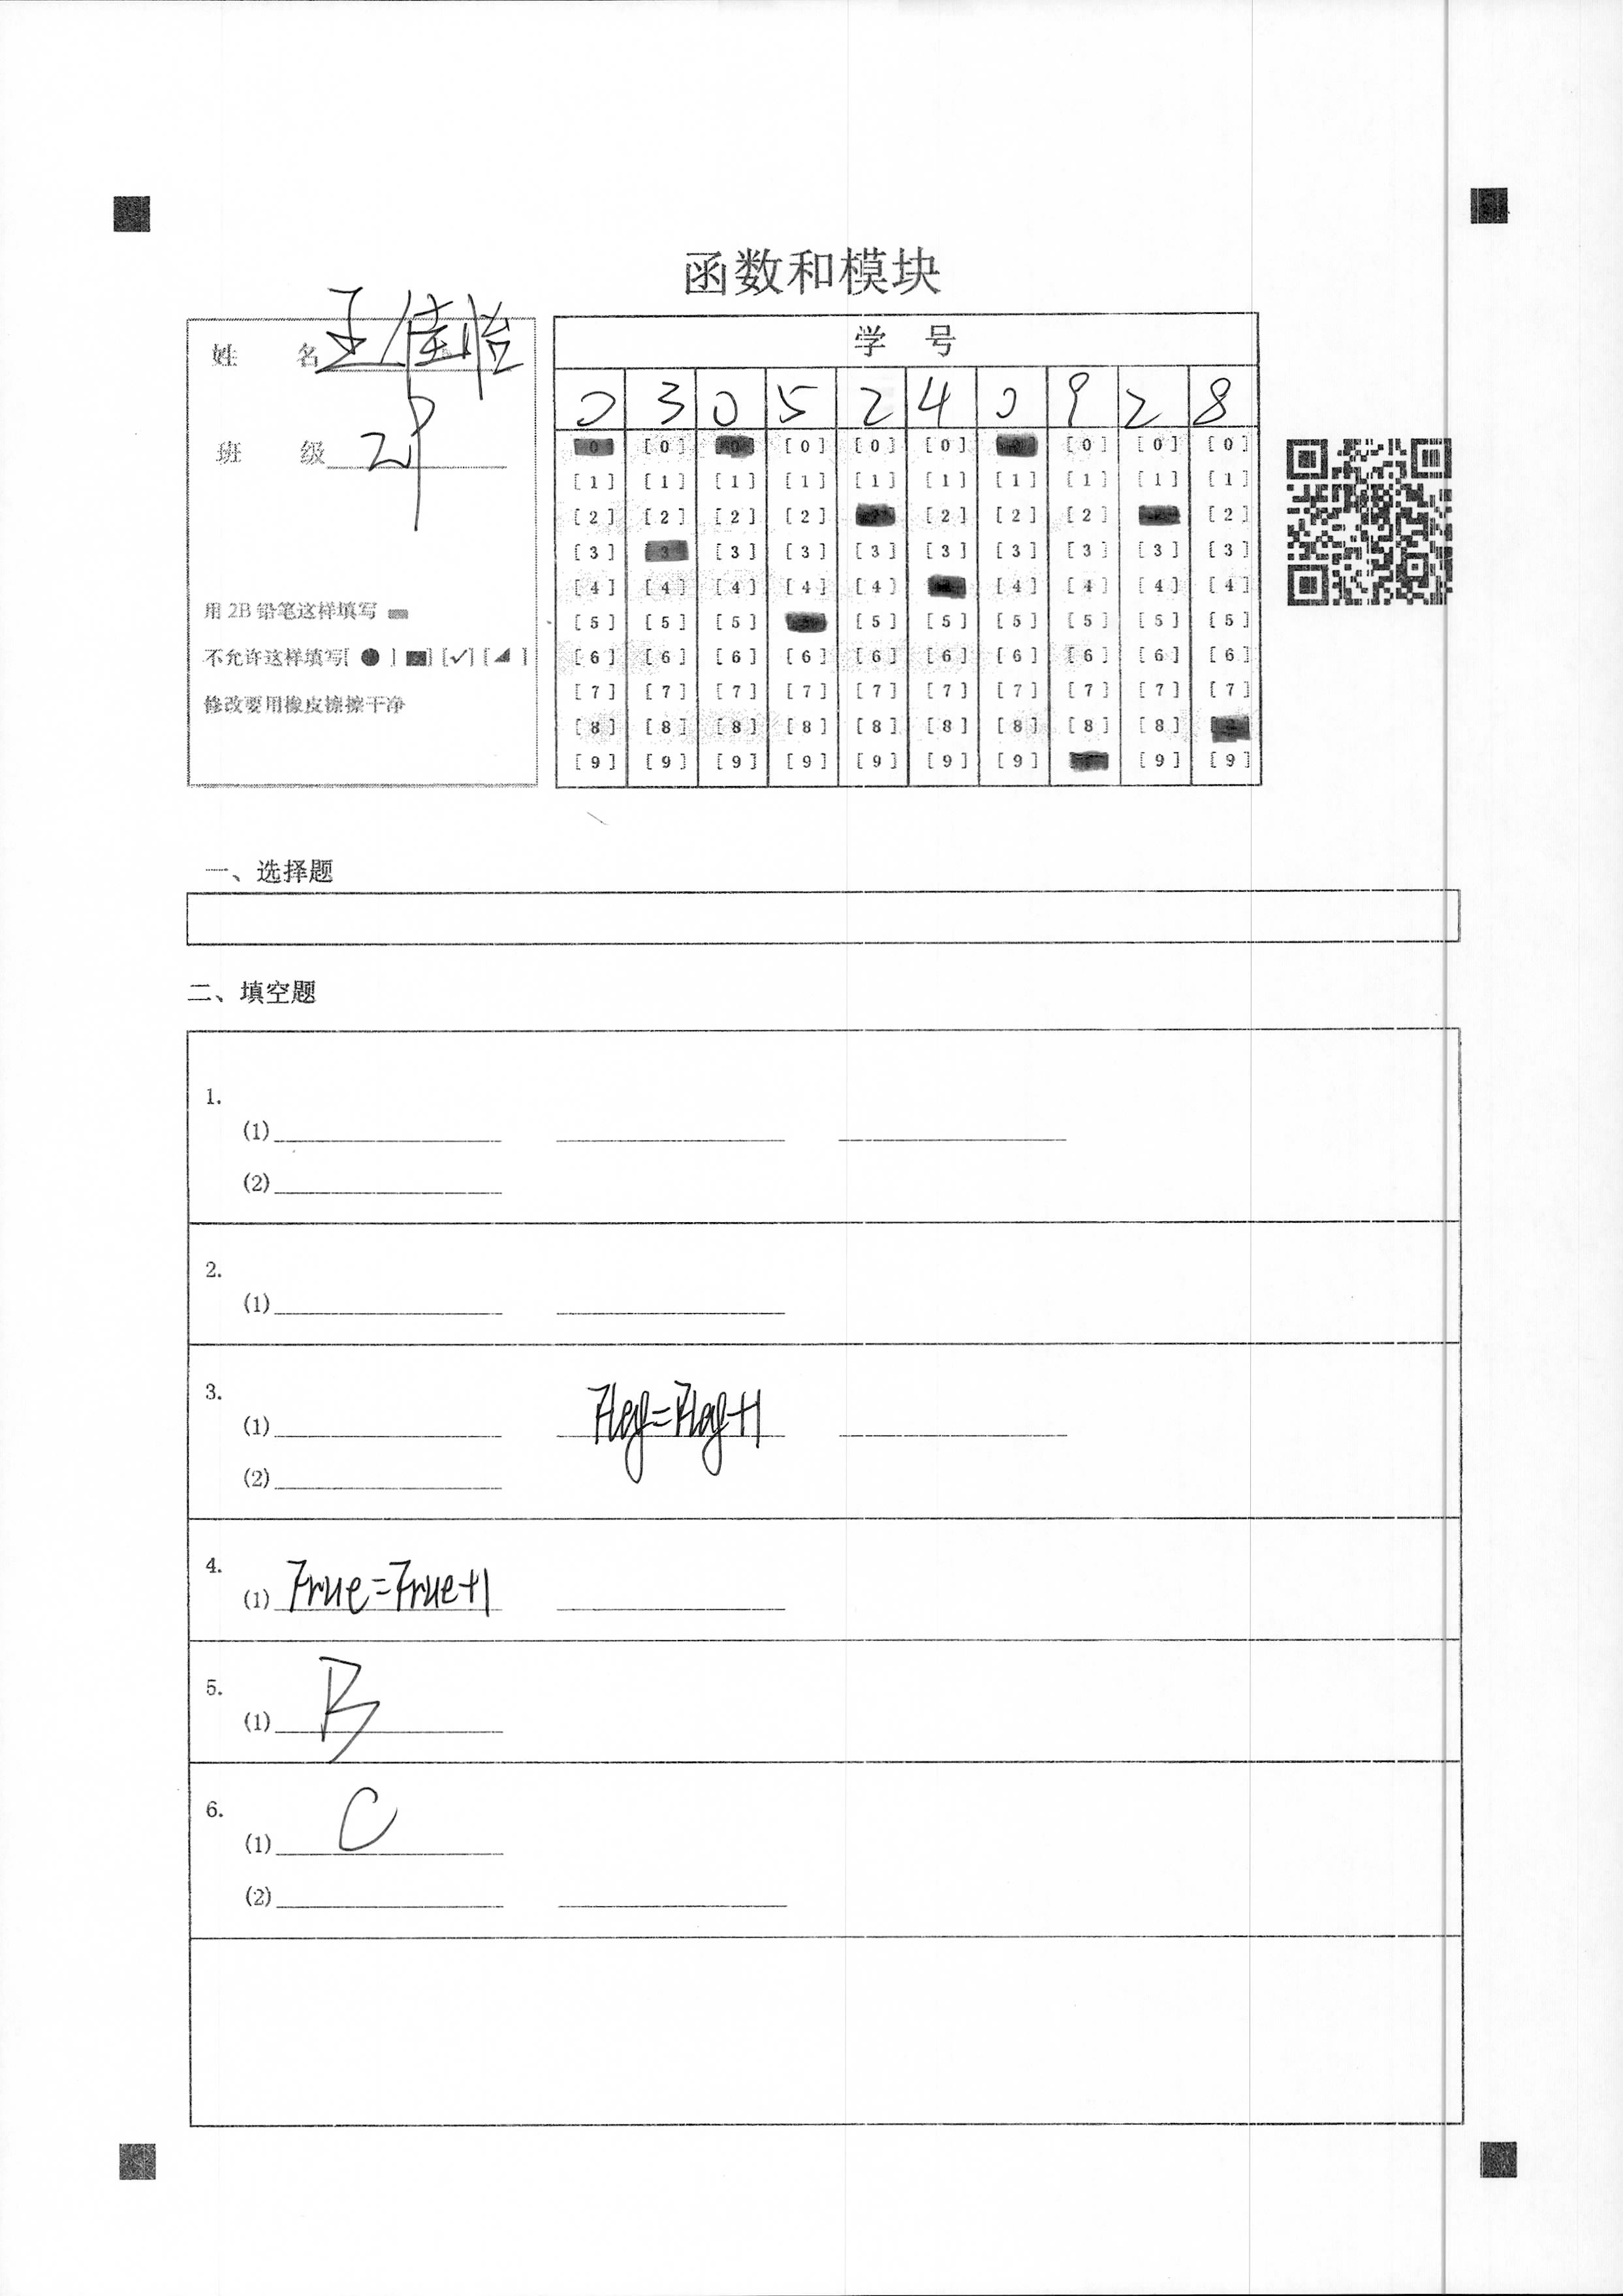 函数和模块
姓 名 王佳怡
班 级
用 2B 铅笔这样填写
不允许这样填写[ ● ] [■] [✓] [◢ ]
修改要用橡皮擦擦干净
学 号
0 3 0 5 2 4 0 9 2 8
[0] [0] [0] [0] [0] [0] [0] [0] [0] [0]
[1] [1] [1] [1] [1] [1] [1] [1] [1] [1]
[2] [2] [2] [2] [2] [2] [2] [2] [2] [2]
[3] [3] [3] [3] [3] [3] [3] [3] [3] [3]
[4] [4] [4] [4] [4] [4] [4] [4] [4] [4]
[5] [5] [5] [5] [5] [5] [5] [5] [5] [5]
[6] [6] [6] [6] [6] [6] [6] [6] [6] [6]
[7] [7] [7] [7] [7] [7] [7] [7] [7] [7]
[8] [8] [8] [8] [8] [8] [8] [8] [8] [8]
[9] [9] [9] [9] [9] [9] [9] [9] [9] [9]
一、选择题
二、填空题
1.
(1)
(2)
2.
(1)
3.
(1) Flag=Flag+1
(2)
4.
(1) True=True+1
5.
(1) B
6.
(1) C
(2)